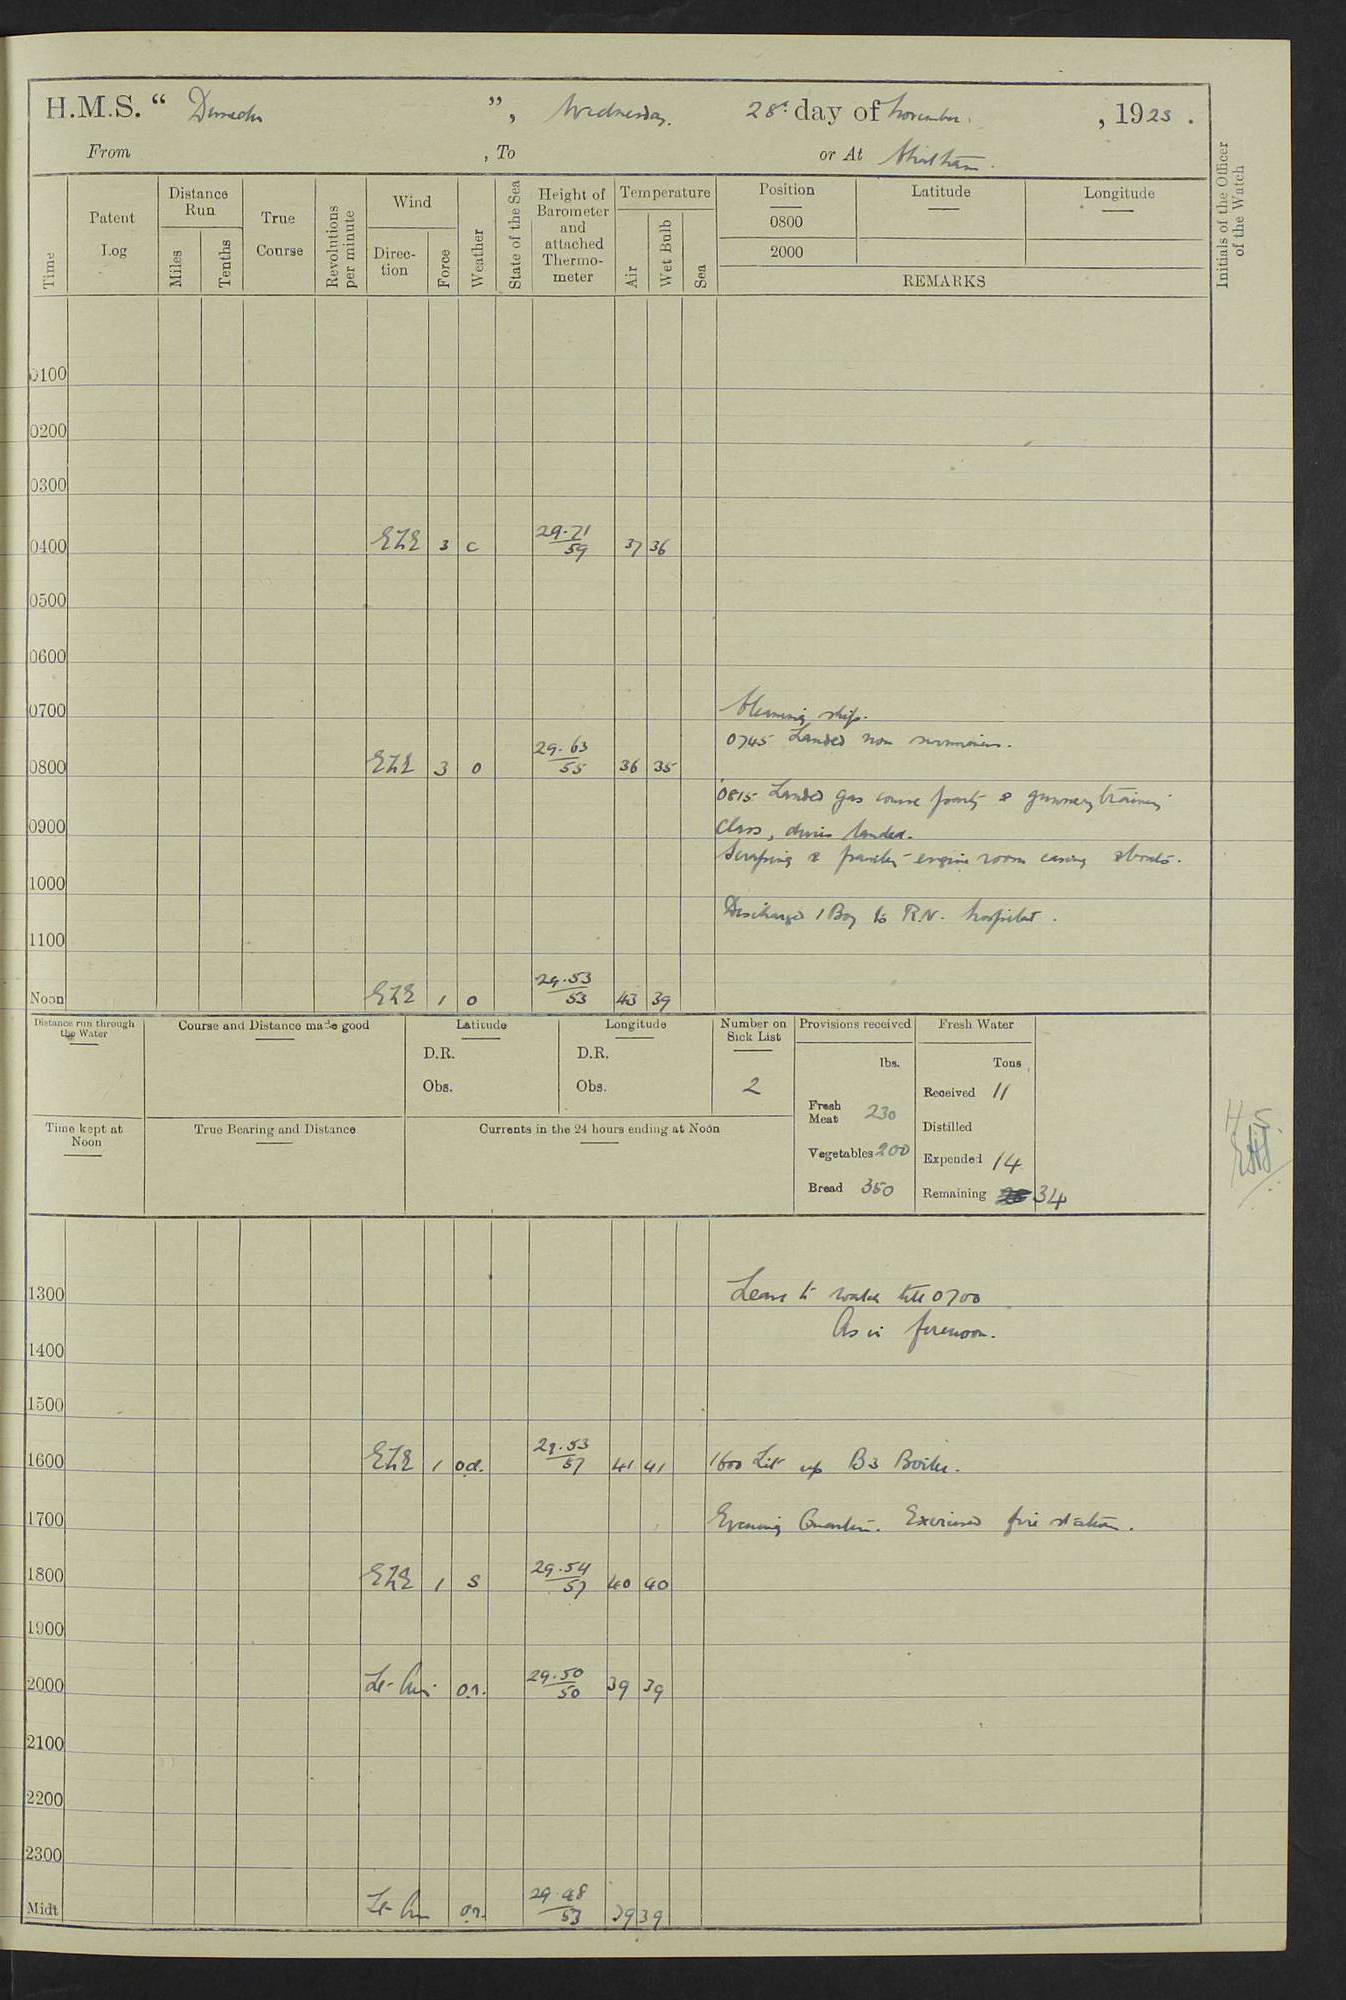 H.M.S. “ Dunedin ”, Wednesday. 28th day of November. , 1923 .
From , To or At Chatham.
Time
Patent Log
Distance Run
Miles
Tenths
True Course
Revolutions per minute
Wind
Direction
Force
Weather
State of the Sea
Height of Barometer and attached Thermometer
Temperature
Air
Wet Bulb
Sea
Position Latitude Longitude
0800
2000
REMARKS
Initials of the Officer of the Watch
0100
0200
0300
0400 3 c 29.71/59 37 36
0500
0600
0700 Cleaning ship.
0745 Landed non swimmers.
0800 3 o 29.63/55 36 35
0815 Landed gas course party & gunnery training
0900 Class, landed.
Scraping & engine room casing
1000
Discharged 1 Boy to R.N. hospital.
1100
Noon 1 o 29.53/53 43 39
Distance run through the Water
Course and Distance made good
Latitude
D.R.
Obs.
Longitude
D.R.
Obs.
Number on Sick List
2
Provisions received
lbs.
Fresh Meat 230
Vegetables 200
Bread 350
Fresh Water
Tons
Received 11
Distilled
Expended 14
Remaining 34
Time kept at Noon
True Bearing and Distance
Currents in the 24 hours ending at Noon
1300 Leave to watch till 0700
As in forenoon.
1400
1500
1600 1 o.d. 29.53/57 41 41 1600 Lit up B3 Boiler.
1700 Evening Quarters. Exercised fire stations.
1800 1 s 29.54/57 40 40
1900
2000 Lt. Airs o.r. 29.50/50 39 39
2100
2200
2300
Midt Lt. Airs o.r. 29.48/53 39 39